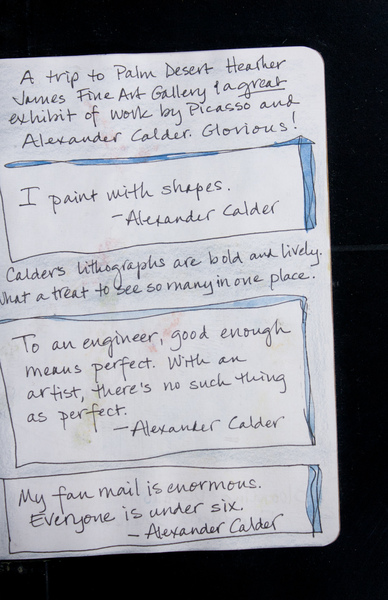 A trip to Palm Desert Heather
James Fine Art Gallery & a great
exhibit of work by Picasso and
Alexander Calder. Glorious!
I paint with shapes.
—Alexander Calder
Calder's lithographs are bold and lively.
What a treat to see so many in one place.
To an engineer, good enough
means perfect. With an
artist, there's no such thing
as perfect.
—Alexander Calder
My fan mail is enormous.
Everyone is under six.
—Alexander Calder